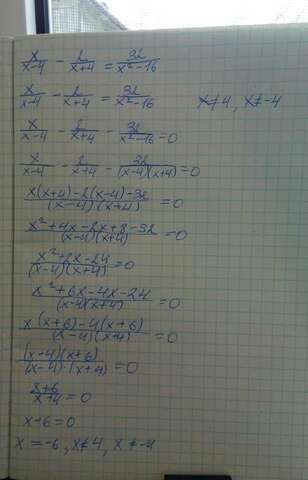 x/x-4 - 2/x+4 = 32/x²-16
x/x-4 - 2/x+4 = 32/x²-16 x≠4, x≠-4
x/x-4 - 2/x+4 - 32/x²-16 = 0
x/x-4 - 2/x+4 - 32/(x-4)(x+4) = 0
x(x+4)-2(x-4)-32/(x-4)·(x+4) = 0
x²+4x-2x+8-32/(x-4)(x+4) = 0
x²+2x-24/(x-4)(x+4) = 0
x²+6x-4x-24/(x-4)(x+4) = 0
x(x+6)-4(x+6)/(x-4)(x+4) = 0
(x-4)(x+6)/(x-4)·(x+4) = 0
x+6/x+4 = 0
x+6=0
x=-6, x≠4, x≠-4